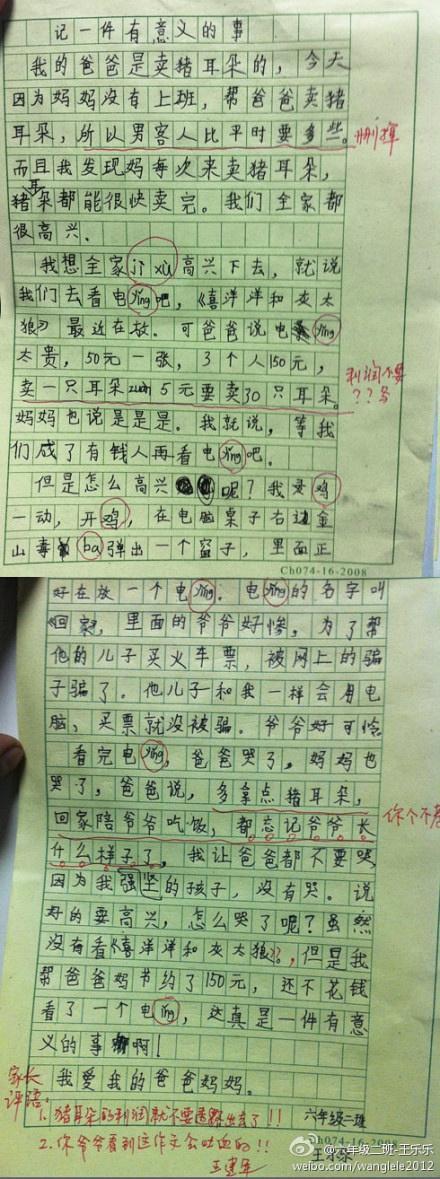 记一件有意义的事
我的爸爸是卖猪耳朵的，今天
因为妈妈没有上班，帮爸爸卖猪
耳朵，所以男客人比平时要多些。
而且我发现妈每次来卖猪耳朵，
猪耳朵都能很快卖完。我们全家都
很高兴.
我想全家jì xù高兴下去，就说
我们去看电yǐng吧，《喜洋洋和灰太
狼》最近在放．可爸爸说电yǐng
太贵，50元一张，3个人150元，
卖一只耳朵zuàn5元要卖30只耳朵。
利润不要
？？多
妈妈也说是是是．我就说，等我
们成了有钱人再看电yǐng吧．
但是怎么高兴呢？我灵鸡
一动，开鸡，在电脑桌子右边金
山毒ba弹出一个窗子，里面正
Ch074-16-2008
好在放一个电yǐng．电yǐng的名字叫
《回家》，里面的爷爷好惨，为了帮
他的儿子买火车票，被网上的骗
子骗了．他儿子和我一样会用电
脑，买票就没被骗．爷爷好可怜
看完电yǐng，爸爸哭了，妈妈也
哭了，爸爸说，多拿点猪耳朵，
回家陪爷爷吃饭，都忘记爷爷长
你个不孝
什么样子了，我让爸爸都不要哭
因为我强坚的孩子，没有哭．说
好的要高兴，怎么哭了呢？虽然
没有看《喜洋洋和灰太狼》，但是我
帮爸爸妈节约了150元，还不花钱
看了一个电yǐng，这真是一件有意
义的事啊！
我爱我的爸爸妈妈．
家长
评语：
1.猪耳朵的利润就不要透露出去了！！
六年级二班
2.你爷爷看到这作文会吐血的！！
王建军
Ch074-16-2008
王乐乐
@六年级二班-王乐乐
weibo.com/wanglele2012